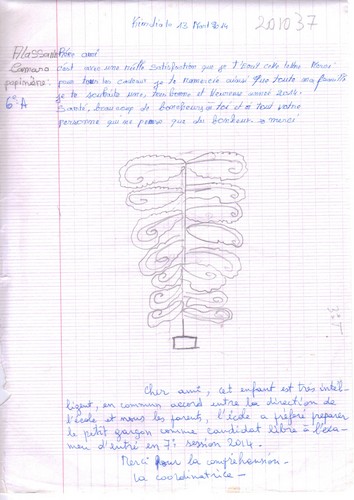 Kindiala 13 Avril 2014
201037
Alassane
Camara
papinière
6e A
Cher ami
c'est avec une mille satisfaction que je t'écrit cette lettre. Merci
pour tous les cadeaux je te remercie ainsi que toute ma famille
je te souhaite une, bonne et heureuse année 2014.
Santé, beaucoup de bonheur à toi et à tout votre
personne qui ne pense que du bonheur. merci
Cher ami, cet enfant est très intel-
ligent, en commun accord entre la direction de
l'école et nous les parents, l'école a préféré préparer
le petit garçon comme candidat libre à l'exa-
men d'entré en 7è session 2014.
Merci pour la compréhension.
La coordinatrice -